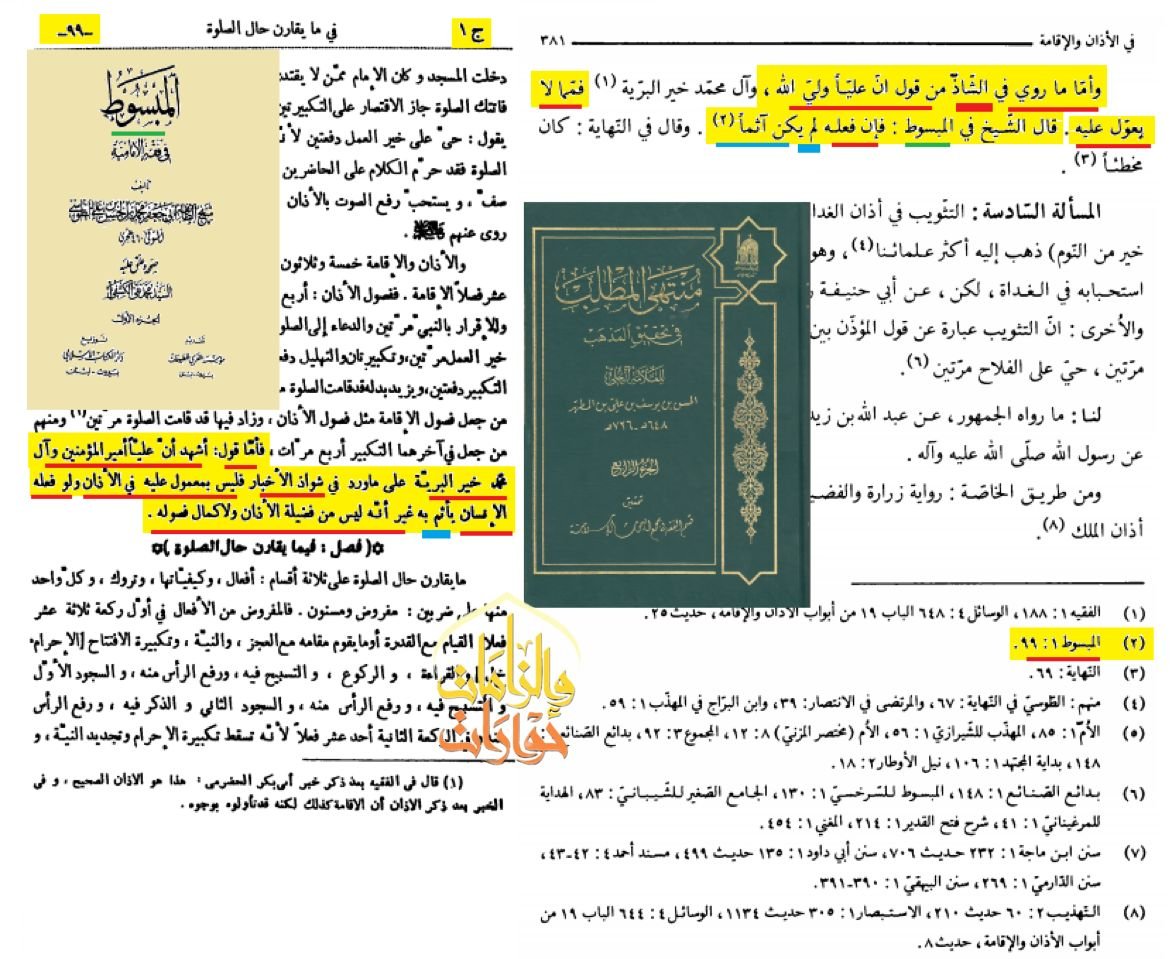 في الأذان والإقامة ٣٨١
وأمّا ما روي في الشّاذّ من قول انّ عليّاً وليّ الله ، وآل محمّد خير البريّة (١) فممّا لا
يعوّل عليه . قال الشّيخ في المبسوط : فإن فعله لم يكن آثماً (٢) . وقال في النّهاية : كان
مخطئاً (٣) .
المسألة السّادسة : التّثويب في أذان الغدا
خير من النّوم) ذهب إليه أكثر علمائنا (٤) ، وهو
استحبابه في الغداة ، لكن ، عن أبي حنيفة
والأُخرى : انّ التّثويب عبارة عن قول المؤذّن بين
مرّتين ، حيّ على الفلاح مرّتين (٦) .
لنا : ما رواه الجمهور ، عن عبد الله بن زيد
عن رسول الله صلّى الله عليه وآله .
ومن طريق الخاصّة : رواية زرارة والفضيـ
أذان الملك (٨) .
مُنتهى المطلب
في تحقيق المذهب
للعلّامة الحلّي
الحسن بن يوسف بن علي بن المطهّر
٦٤٨هـ - ٧٢٦هـ
الجزء الرابع
تحقيق
(١) الفقيه ١ : ١٨٨، الوسائل ٤ : ٦٤٨ الباب ١٩ من أبواب الأذان والإقامة، حديث ٢٥.
(٢) المبسوط ١ : ٩٩.
(٣) النّهاية : ٦٩.
(٤) منهم : الطّوسيّ في النّهاية : ٦٧، والمرتضى في الانتصار : ٣٩، وابن البرّاج في المهذّب ١ : ٥٩.
(٥) الأُمّ ١ : ٨٥، المهذّب للشّيرازيّ ١ : ٥٦، الأُم (مختصر المزنيّ) ٨ : ١٢، المجموع ٣ : ٩٢، بدائع الصّنائع
١٤٨، بداية المجتهد ١ : ١٠٦، نيل الأوطار ٢ : ١٨.
(٦) بدائع الصّنائع ١ : ١٤٨، المبسوط للسّرخسيّ ١ : ١٣٠، الجامع الصّغير للشّيبانيّ : ٨٣، الهداية
للمرغينانيّ ١ : ٤١، شرح فتح القدير ١ : ٢١٤، المغني ١ : ٤٥٤.
(٧) سنن ابن ماجة ١ : ٢٣٢ حديث ٧٠٦، سنن أبي داود ١ : ١٣٥ حديث ٤٩٩، مسند أحمد ٤ : ٤٢-٤٣،
سنن الدّارميّ ١ : ٢٦٩، سنن البيهقيّ ١ : ٣٩٠-٣٩١.
(٨) التّهذيب ٢ : ٦٠ حديث ٢١٠، الاستبصار ١ : ٣٠٥ حديث ١١٣٤، الوسائل ٤ : ٦٤٤ الباب ١٩ من
أبواب الأذان والإقامة، حديث ٨.
ج ١ في ما يقارن حال الصلوة -٩٩-
دخلت المسجد و كان الإمام ممّن لا يقتد
فاتتك الصلوة جاز الاقتصار على التكبير تين
يقول : حيّ على خير العمل دفعتين لا
الصلوة فقد حرّم الكلام على الحاضرين
صفّ ، و يستحبّ رفع الصوت بالأذان
روى عنهم
والأذان والإقامة خمسة وثلاثون
عشر فصلاً الإقامة . ففصول الأذان : أربع
والإقرار بالنبيّ مرّتين والدعاء إلى الصلو
خير العمل مرّتين، وتكبيرتان والتهليل دفعـ
التكبير دفعتين، ويزيد بدله قد قامت الصلوة
من جعل فصول الإقامة مثل فصول الأذان ، وزاد فيها قد قامت الصلوة مرّتين (١) ومنهم
من جعل في آخرهما التكبير أربع مرّات ، فأمّا قول: أشهد أنّ عليّاً أمير المؤمنين وآل
محمّد خير البريّة على ماورد في شواذّ الأخبار فليس بمعمول عليه في الأذان ولو فعله
الإنسان يأثم به غير أنّه ليس من فضيلة الأذان ولا كمال فصوله .
﴿ فصل : فيما يقارن حال الصلوة ﴾
ما يقارن حال الصلوة على ثلاثة أقسام : أفعال ، وكيفيّاتها ، وتروك ، و كلّ واحد
منها على ضربين : مفروض ومسنون . فالمفروض من الأفعال في أوّل ركعة ثلاثة عشر
فعلاً القيام مع القدرة أوما يقوم مقامه مع العجز ، والنيّة ، وتكبيرة الافتتاح [الإحرام-
والقراءة ، و الركوع ، و التسبيح فيه ، ورفع الرأس منه ، و السجود الأوّل
و التسبيح فيه ، و رفع الرأس منه ، و السجود الثاني و الذكر فيه ، و رفع الرأس
في الركعة الثانية أحد عشر فعلاً لأنّه تسقط تكبيرة الإحرام وتجديد النيّة ، و
(١) قال في الفقيه بعد ذكر خبر أبي بكر الحضرمي : هذا هو الاذان الصحيح ، و في
الخبر بعد ذكر الاذان أن الاقامة كذلك لكنه قد تأولوه بوجوه .
المبسوط
في فقه الإمامية
تأليف
شيخ الطائفة أبي جعفر محمد بن الحسن بن علي الطوسي
المتوفى ٤٦٠ هجري
صححه وعلق عليه
السيد محمد تقي الكشفي
الجزء الأول
توزيع
دار الكتاب الإسلامي
بيروت - لبنان
تقديم
بيروت - لبنان
حوارات
والزامات